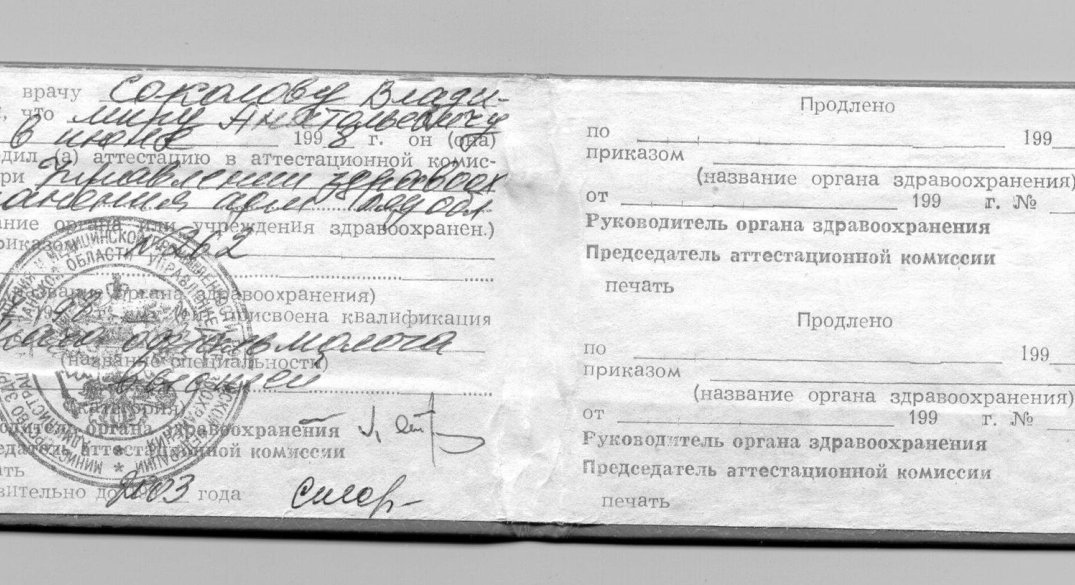 врачу Соколову Влади-
, что миру Анатольевичу
в июне 1998 г. он (она)
дил (а) аттестацию в аттестационной комис-
ри Управлении здравоох
ранения адм
ание органа или учреждения здравоохранен.)
риказом № 262
название органа здравоохранения)
присвоена квалификация
врача офтальмолога
(название специальности)
высшей
(категория)
водитель органа здравоохранения
седатель аттестационной комиссии
ать
вительно до 2003 года
Продлено
по 199
приказом
(название органа здравоохранения)
от 199 г. №
Руководитель органа здравоохранения
Председатель аттестационной комиссии
печать
Продлено
по 199
приказом
(название органа здравоохранения)
от 199 г. №
Руководитель органа здравоохранения
Председатель аттестационной комиссии
печать